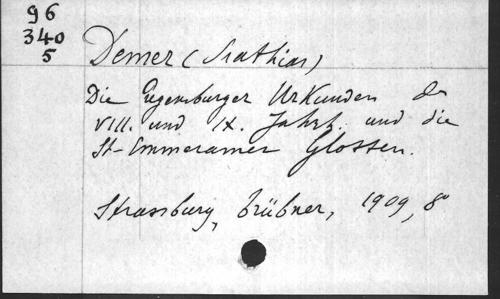 96
340
5
Demer (Mathias)
Die Regensburger Urkunden des
VIII. und IX. Jahrh. und die
St-Emmeramer Glossen.
Strassburg, Trübner, 1909, 8°